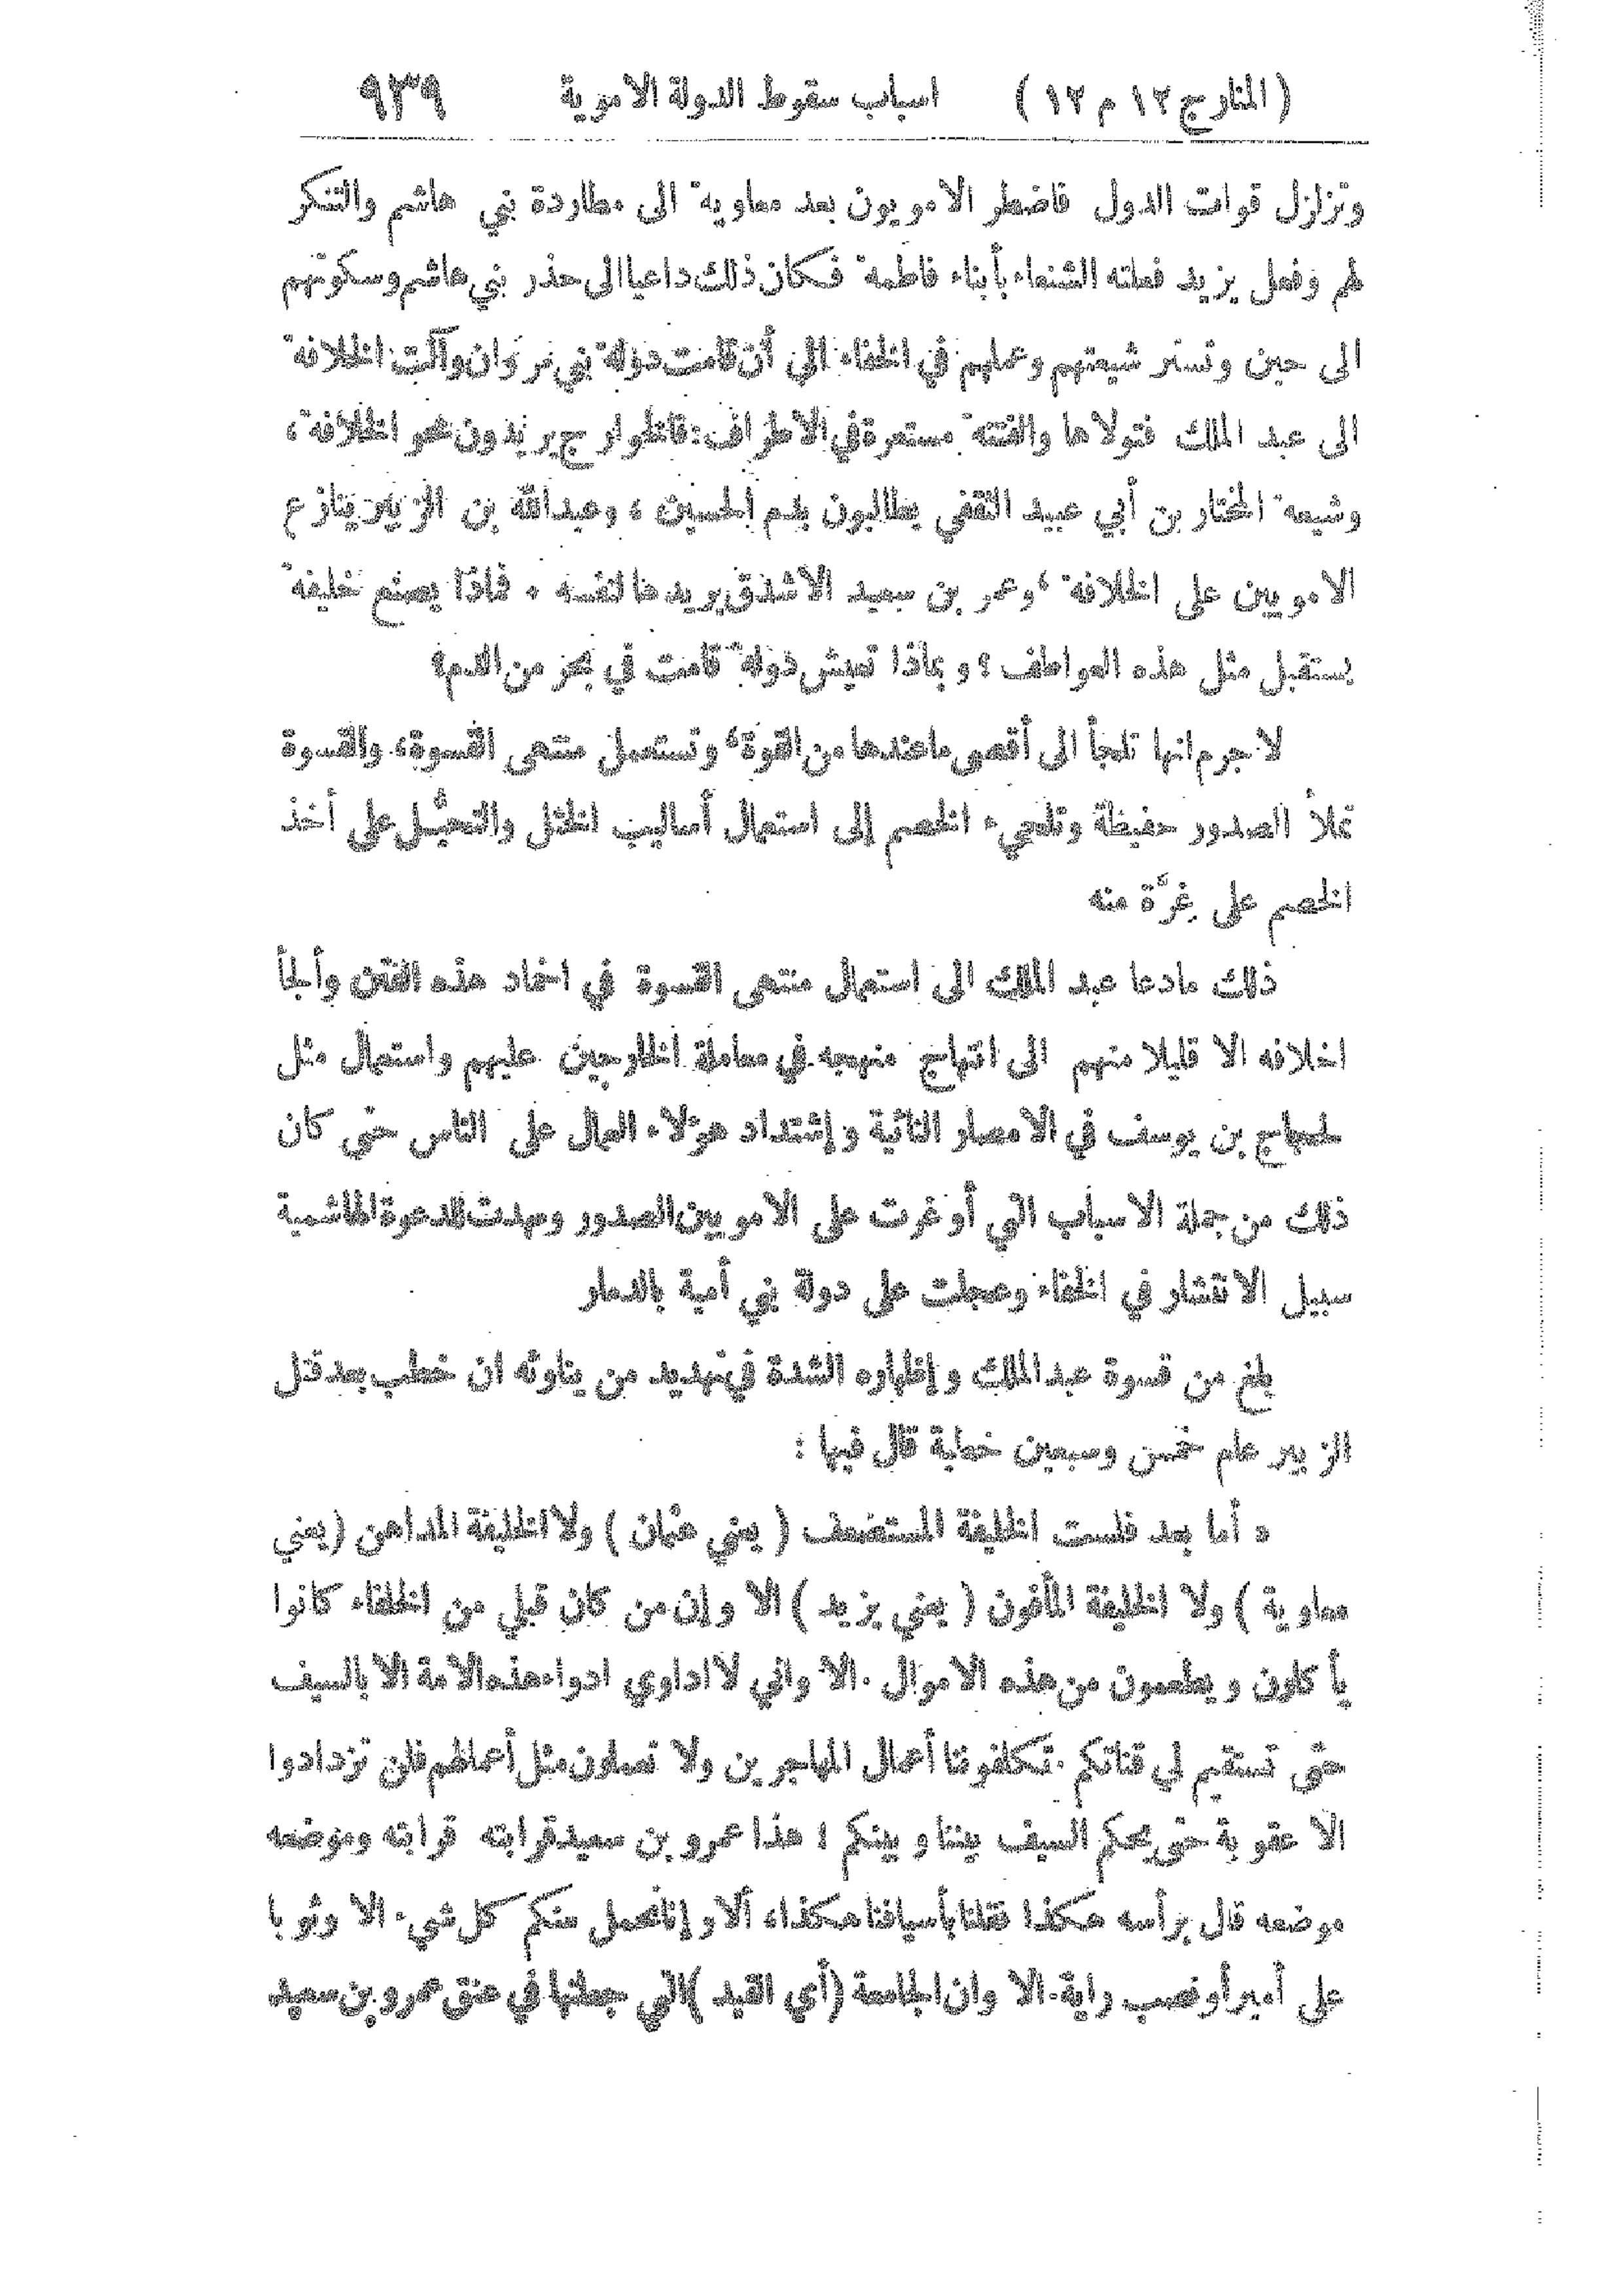 (المنار ج ١٢ م ١٢) اسباب سقوط الدولة الاموية ٩٣٩
وتزلزل قوات الدول فاضطر الامويون بعد معاوية الى مطاردة بني هاشم والتنكر
لهم وفعل يزيد فعلته الشنعاء بأبناء فاطمة فكان ذلك داعيا الى حذر بني هاشم وسكوتهم
الى حين وتستر شيعتهم وعملهم في الخفاء الى أن قامت دولة بني مروان وآلت الخلافة
الى عبد الملك فتولاها والفتنة مستعرة في الاطراف: فالخوارج يريدون محو الخلافة،
وشيعة المختار بن أبي عبيد الثقفي يطالبون بدم الحسين، وعبدالله بن الزبير ينازع
الامويين على الخلافة، وعمر بن سعيد الاشدق يريدها لنفسه. فماذا يصنع خليفة
يستقبل مثل هذه العواطف؟ وبماذا تعيش دولة قامت في بحر من الدم؟
لا جرم انها تلجأ الى أقصى ما عندها من القوة، وتستعمل منتهى القسوة، والقسوة
تملأ الصدور حفيظة وتلجيء الخصم إلى استعمال أساليب الختل والتحيُّل على أخذ
الخصم على غِرَّة منه
ذلك مادعا عبد الملك الى استعمال منتهى القسوة في اخماد هذه الفتن وألجأ
اخلافه الا قليلا منهم الى انتهاج منهجه في معاملة الخارجين عليهم واستعمال مثل
لحجاج بن يوسف في الامصار النائية وإشتداد هؤلاء العمال على الناس حتى كان
ذلك من جملة الاسباب التي أوغرت على الامويين الصدور ومهدت للدعوة الهاشمية
سبيل الانتشار في الخفاء وعجلت على دولة بني أمية بالدمار
بلغ من قسوة عبد الملك وإظهاره الشدة في تهديد من يناوئه ان خطب بعد قتل
الزبير عام خمس وسبعين خطبة قال فيها:
« أما بعد فلست الخليفة المستضعف (يعني عثمان) ولا الخليفة المداهن (يعني
معاوية) ولا الخليفة المأفون (يعني يزيد) الا وإن من كان قبلي من الخلفاء كانوا
يأكلون ويطعمون من هذه الاموال. الا واني لا اداوي ادواء هذه الامة الا بالسيف
حتى تستقيم لي قناتكم. تكلفوننا أعمال المهاجرين ولا تعملون مثل أعمالهم فلن تزدادوا
الا عقوبة حتى يحكم السيف بيننا وبينكم؛ هذا عمرو بن سعيد قرابته قرابته وموضعه
موضعه قال برأسه هكذا فقلنا بأسيافنا هكذا، ألا وإنا نحمل منكم كل شيء الا وثوبا
على أمير أو نصب راية. الا وان الجامعة (أي القيد) التي جعلتها في عنق عمرو بن سعيد